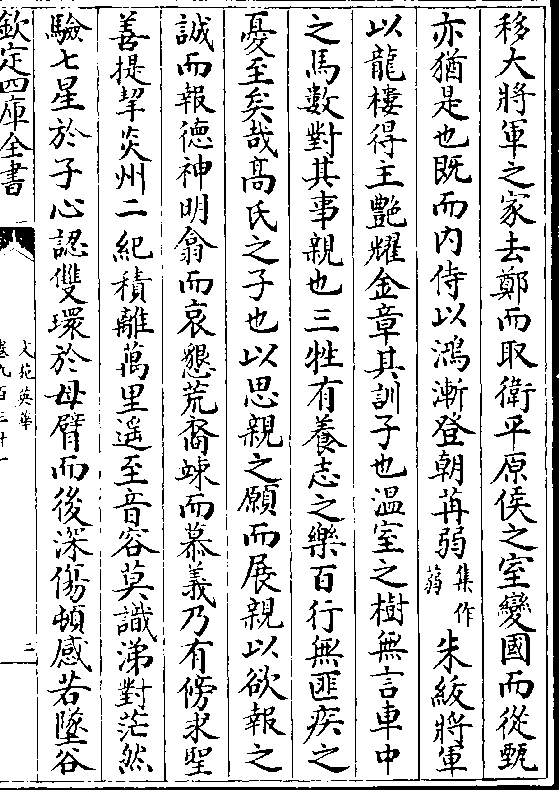 移大將軍之家去鄭而取衛平原侯之室變國而從甄
亦猶是也既而内侍以鴻漸登朝苒弱集作蒻朱紱將軍
以龍樓得王艷耀金章其訓子也温室之樹無言車中
之馬數對其事親也三牲有養志之樂百行無匪疾之
憂至矣哉髙氏之子也以思親之願而展親以欲報之
誠而報德神明翕而哀懇荒裔竦而慕義乃有傍求聖
善提挈炎州二紀積離萬里遥至音容莫識涕對茫然
驗七星於子心認雙環於母臂而後深傷頓感若墜谷
欽定四庫全書
文苑英華
卷九百三十一
二